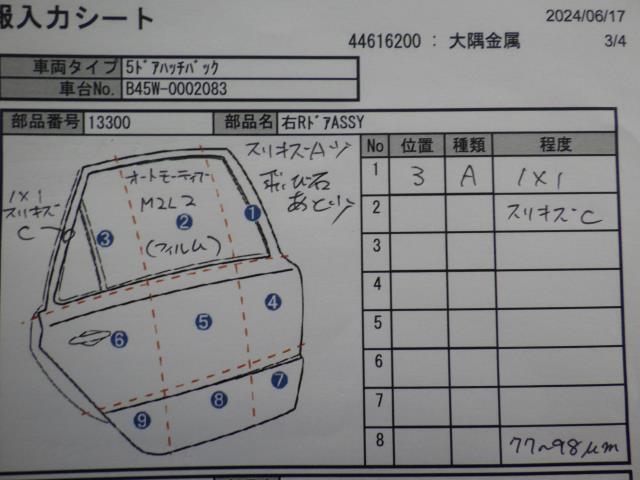 報入力シート
2024/06/17
44616200 : 大隅金属
3/4
車両タイプ 5ドアハッチバック
車台No. B45W-0002083
部品番号 13300 部品名 右RドアASSY
No 位置 種類 程度
1 3 A 1×1
2 スリキズC
3
4
5
6
7
8 77~98μm
スリキズA少
飛び石
あと少
オートモーティブ
M2L2
(フィルム)
1×1
スリキズ
C
1
2
3
4
5
6
7
8
9